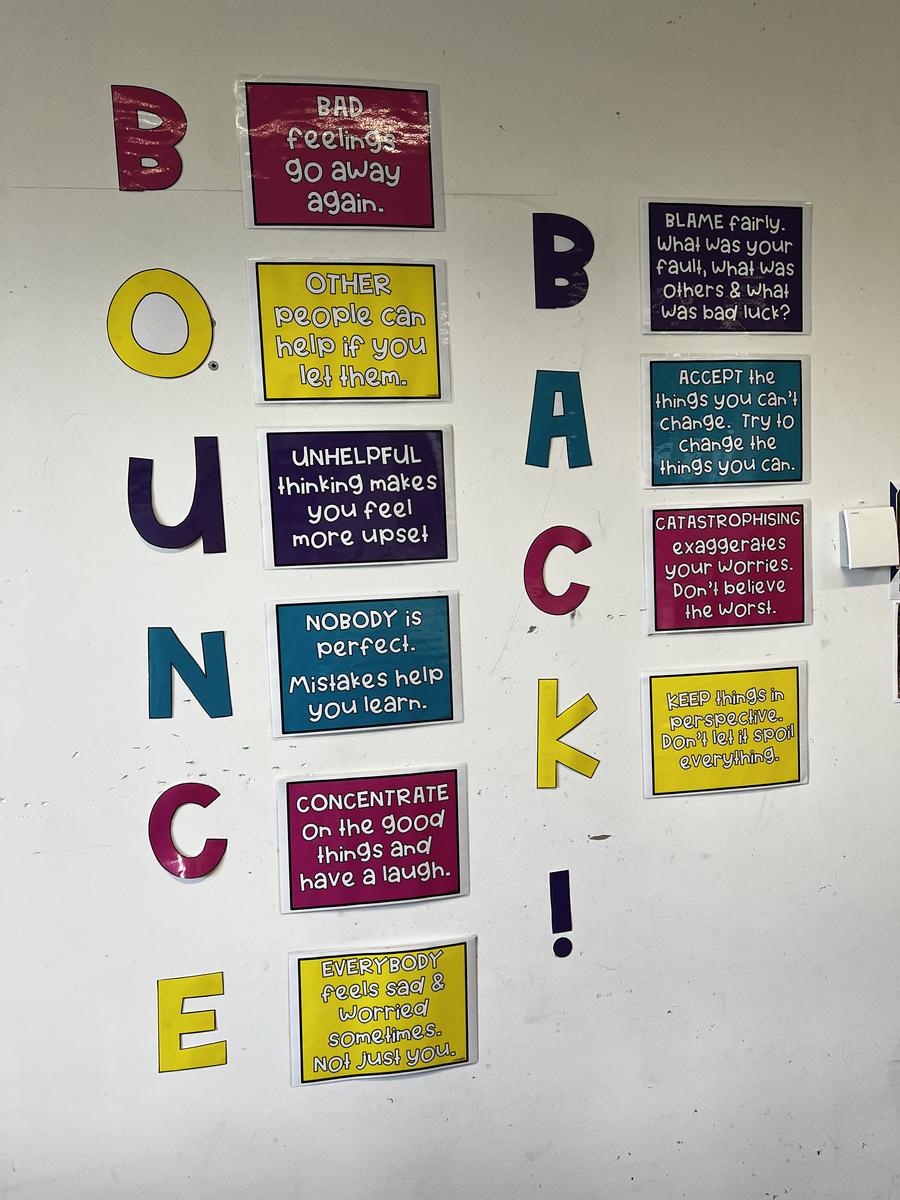 B
BAD
feelings
go away
again.
O
OTHER
people can
help if you
let them.
U
UNHELPFUL
thinking makes
you feel
more upset
N
NOBODY is
perfect.
Mistakes help
you learn.
C
CONCENTRATE
on the good
things and
have a laugh.
E
EVERYBODY
feels sad &
worried
sometimes.
Not just you.
B
BLAME fairly.
What was your
fault, what was
others & what
was bad luck?
A
ACCEPT the
things you can't
change. Try to
change the
things you can.
C
CATASTROPHISING
exaggerates
your worries.
Don't believe
the worst.
K
KEEP things in
perspective.
Don't let it spoil
everything.
!